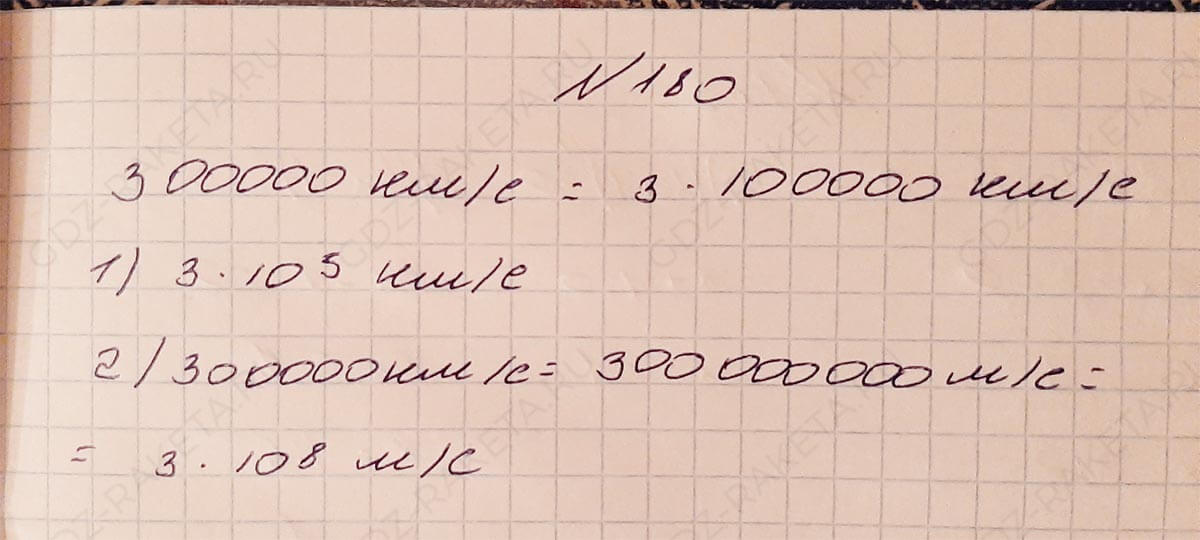 N 180
300000 км/с = 3 · 100000 км/с
1) 3 · 10⁵ км/с
2) 300000 км/с = 300 000 000 м/с =
= 3 · 10⁸ м/с
GDZ-RAKETA.RU